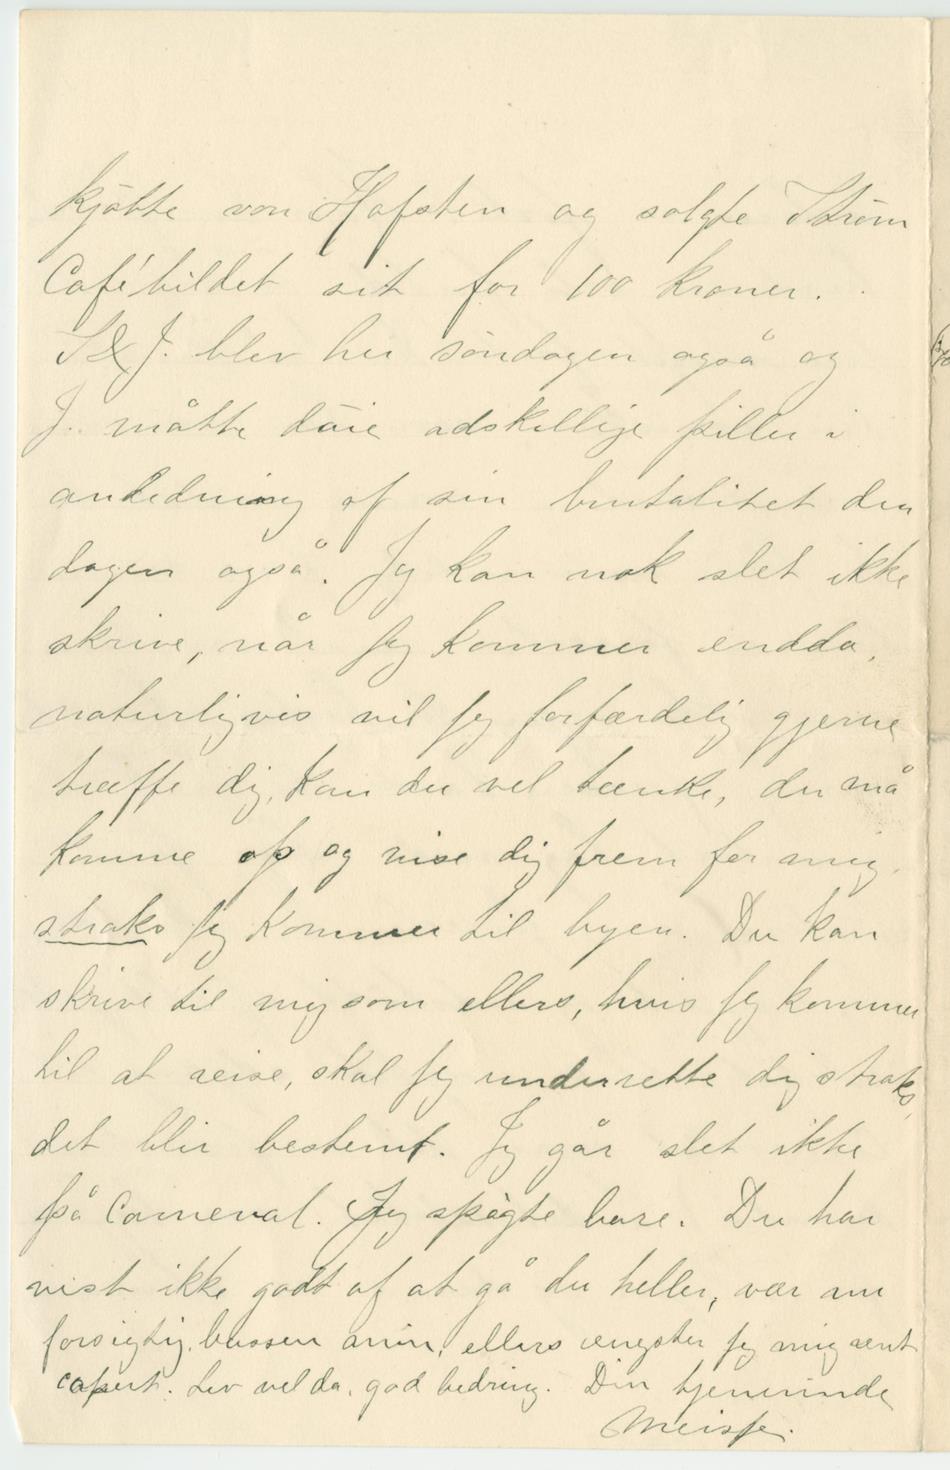 kjøbte von Hafsten og solgte Strøm
Cafébildet sit for 100 kroner.
S & J. blev her søndagen også og
J. måtte døie adskellige piller i
anledning af sin brutalitet den
dagen også. Jeg kan nok slet ikke
skrive, når jeg kommer endda,
naturligvis vil jeg forfærdelig gjerne
træffe dig, kan du vel tænke, du må
komme op og vise dig frem for mig
straks jeg kommer til byen. Du kan
skrive til mig som ellers, hvis jeg kommer
til at reise, skal jeg underrette dig straks,
det blir bestemt. Jeg går slet ikke
på Carneval. Jeg spøgte bare. Du har
vist ikke godt af at gå du heller, vær nu
forsigtig, bassen min, ellers ængster jeg mig rent
caput. Lev vel da, god bedring. Din tjenerinde
Meisse.